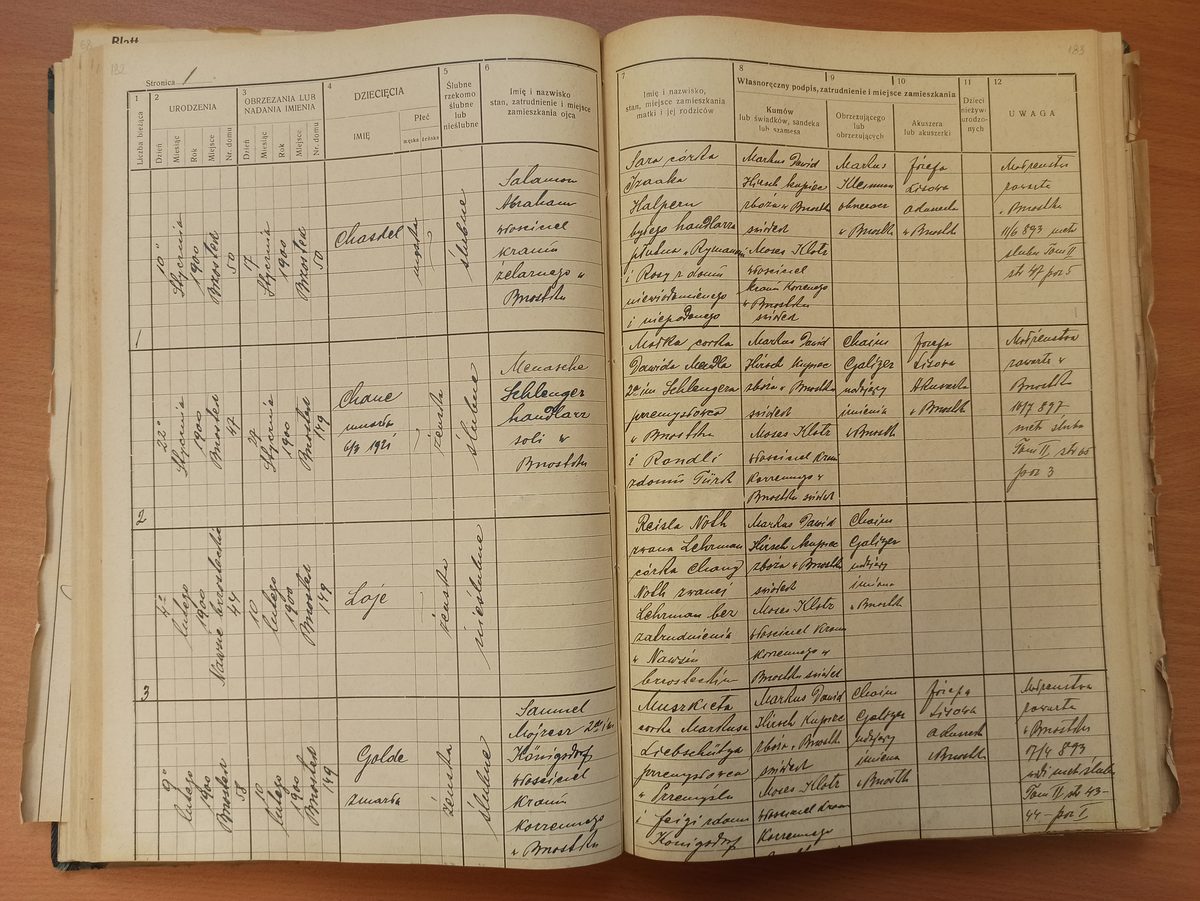 Blatt
182
183
Stronica 1
1
2
3
4
5
6
7
8
9
10
11
12
Liczba bieżąca
URODZENIA
Dzień
Miesiąc
Rok
Miejsce
Nr. domu
OBRZEZANIA LUB
NADANIA IMIENIA
Dzień
Miesiąc
Rok
Miejsce
Nr. domu
DZIECIĘCIA
IMIĘ
Płeć
męska
żeńska
Ślubne
rzekomo
ślubne
lub
nieślubne
Imię i nazwisko
stan, zatrudnienie i miejsce
zamieszkania ojca
Imię i nazwisko,
stan, miejsce zamieszkania
matki i jej rodziców
Własnoręczny podpis, zatrudnienie i miejsce zamieszkania
Kumów
lub świadków, sandeka
lub szamesa
Obrzezającego
lub
obrzezujących
Akuszera
lub akuszerki
Dzieci
nieżywo
urodzo-
nych
UWAGA
1
10
Stycznia
1900
Brzostek
50
17
Stycznia
1900
Brzostek
50
Chaskel
męska
ślubne
Salamon
Abraham
właściciel
kramu
żelaznego w
Brzostku
Sara córka
Izaaka
Halpern
byłego handlarza
płótna w Rymanowie
i Rosy z domu
niewiadomego
i niepodanego
Markus Dawid
Hirsch kupiec
zboża w Brzostku
świadek
Moses Klotz
właściciel
kramu korzennego
w Brzostku
świadek
Markus
Kleinman
obrzezacz
w Brzostku
Józefa
Lisowa
akuszerka
w Brzostku
Małżeństwo
zawarte
w Brzostku
893 metr
ślubu Tom II
str 47 poz 5
2
22
Stycznia
1900
Brzostek
47
29
Stycznia
1900
Brzostek
149
Chane
zmarła
6/3 1921
żeńska
ślubne
Menasche
Schlenger
handlarz
soli w
Brzostku
Małka córka
Dawida Mendla
2ga im Schlengera
przemysłowca
w Brzostku
i Rondli
z domu Türk
Markus Dawid
Hirsch Kupiec
zboża w Brzostku
świadek
Moses Klotz
właściciel Kramu
korzennego w
Brzostku świadek
Chaim
Galizer
nadający
imienia
w Brzostku
Józefa
Lisowa
Akuszerka
w Brzostk
Małżeństwo
zawarte w
Brzostku
10/7 897
metr ślubu
Tom II, str 65
poz 3
3
4
lutego
1900
Nawsie brzosteckie
44
10
lutego
1900
Brzostek
149
Laje
żeńska
nieślubne
Reisla Noth
zwana Lehrman
córka Chany
Noth zwanej
Lehrman bez
zatrudnienia
w Nawsiu
brzosteckim
Markus Dawid
Hirsch Kupiec
zboża w Brzostku
świadek
Moses Klotz
właściciel Kramu
korzennego w
Brzostku świadek
Chaim
Galizer
nadający
imiona
w Brzostk
9
lutego
1900
Brzostek
58
10
lutego
1900
Brzostek
149
Golde
zmarła
żeńska
ślubne
Samuel
Mojżesz 2ga im
Königsdorf
właściciel
kramu
korzennego
w Brzostku
Muszkieta
córka Markusa
Liebschütza
przemysłowca
w Przemyślu
i Feigi z domu
Königsdorf
Markus Dawid
Hirsch Kupiec
zboża w Brzostk
świadek
Moses Klotz
właściciel Kramu
korzennego
Chaim
Galizer
nadający
imiena
w Brzostk
Józefa
Lisowa
akuszerk
w Brzostku
Małżeństwo
zawarte
w Brzostku
17/4 893
metr ślubu
Tom II str 43-
44 - poz 1